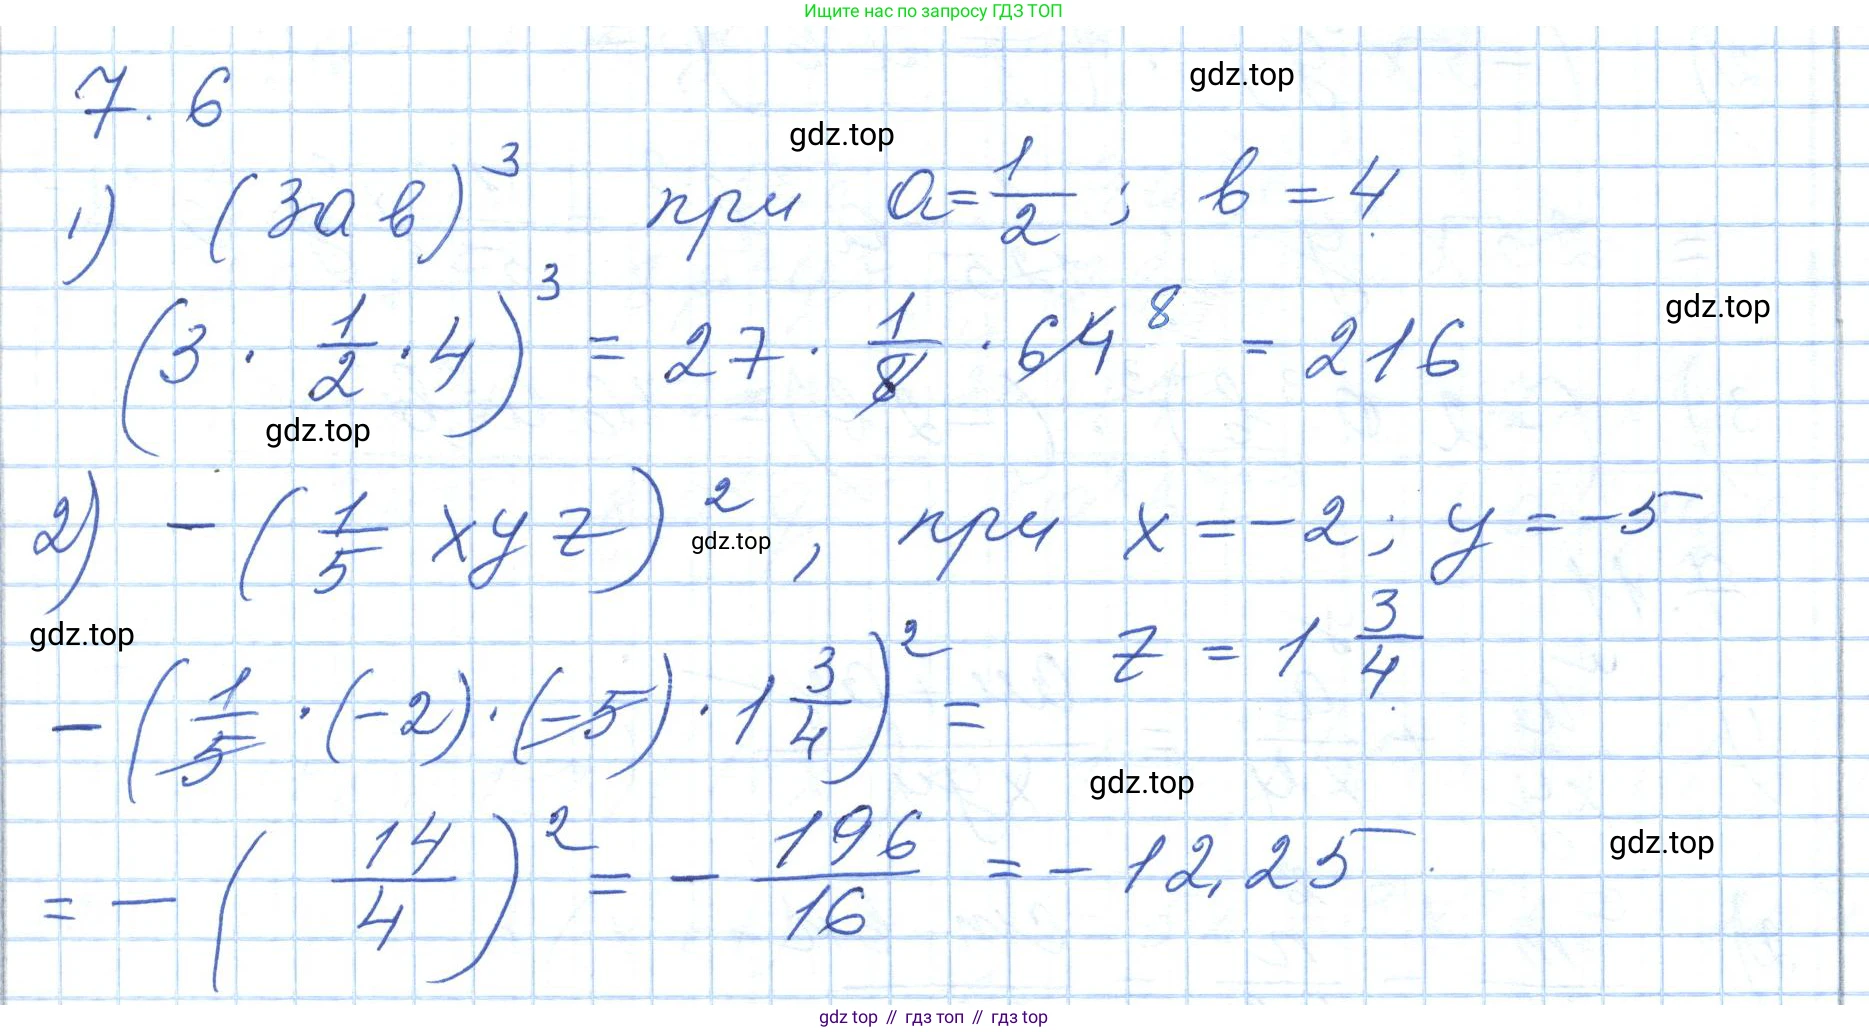 Ищите нас по запросу ГДЗ ТОП
gdz.top
7.6
gdz.top
1) (3ab)³ при a = 1/2 ; b = 4
(3 · 1/2 · 4)³ = 27 · 1/8 · 64 8 = 216
gdz.top
gdz.top
2) - (1/5 xyz)² , при x = -2; y = -5
gdz.top
gdz.top
z = 1 3/4
- (1/5 · (-2) · (-5) · 1 3/4)² =
gdz.top
= - (14/4)² = - 196/16 = - 12,25
gdz.top
gdz.top // гдз топ // гдз top